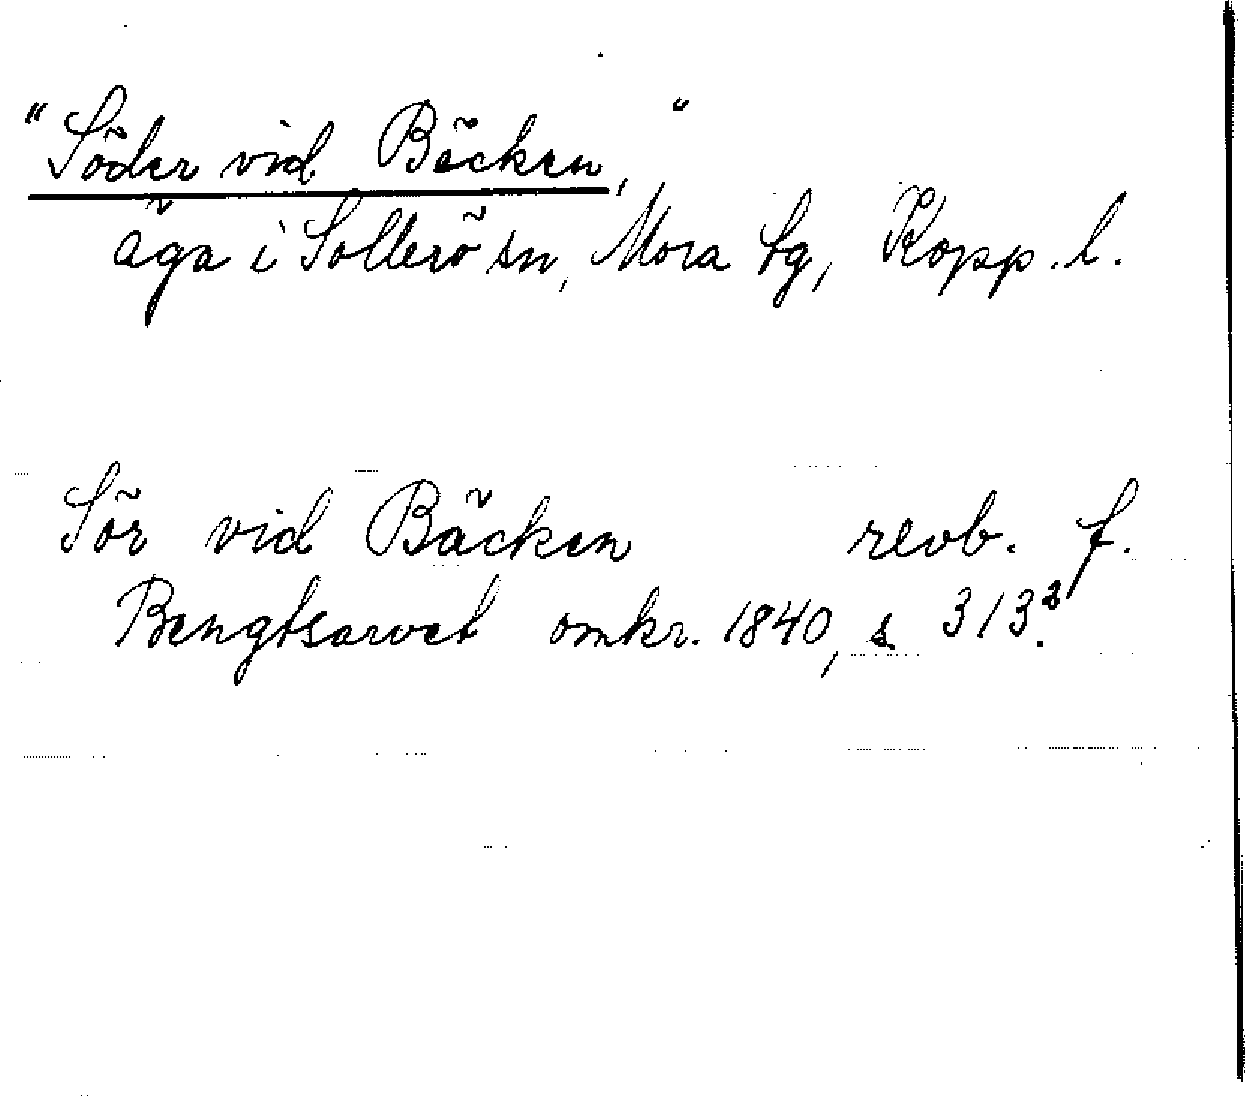 "Söder vid Bäcken,"
äga i Sollerö sn, Mora tg, Kopp. l.
Sör vid Bäcken revb. f.
Bengtsarvet omkr. 1840, s 313.²